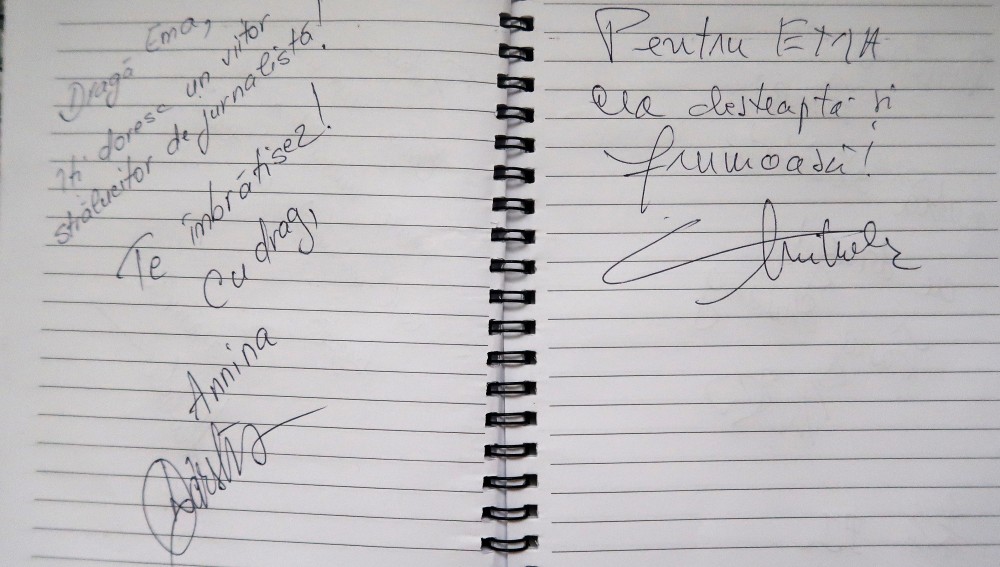 Dragă Ema,
Iti doresc un viitor
strălucitor de jurnalistă!
Te îmbrătisez!
Cu drag,
Annina
Pentru EMA
cea desteaptă si
frumoasă!